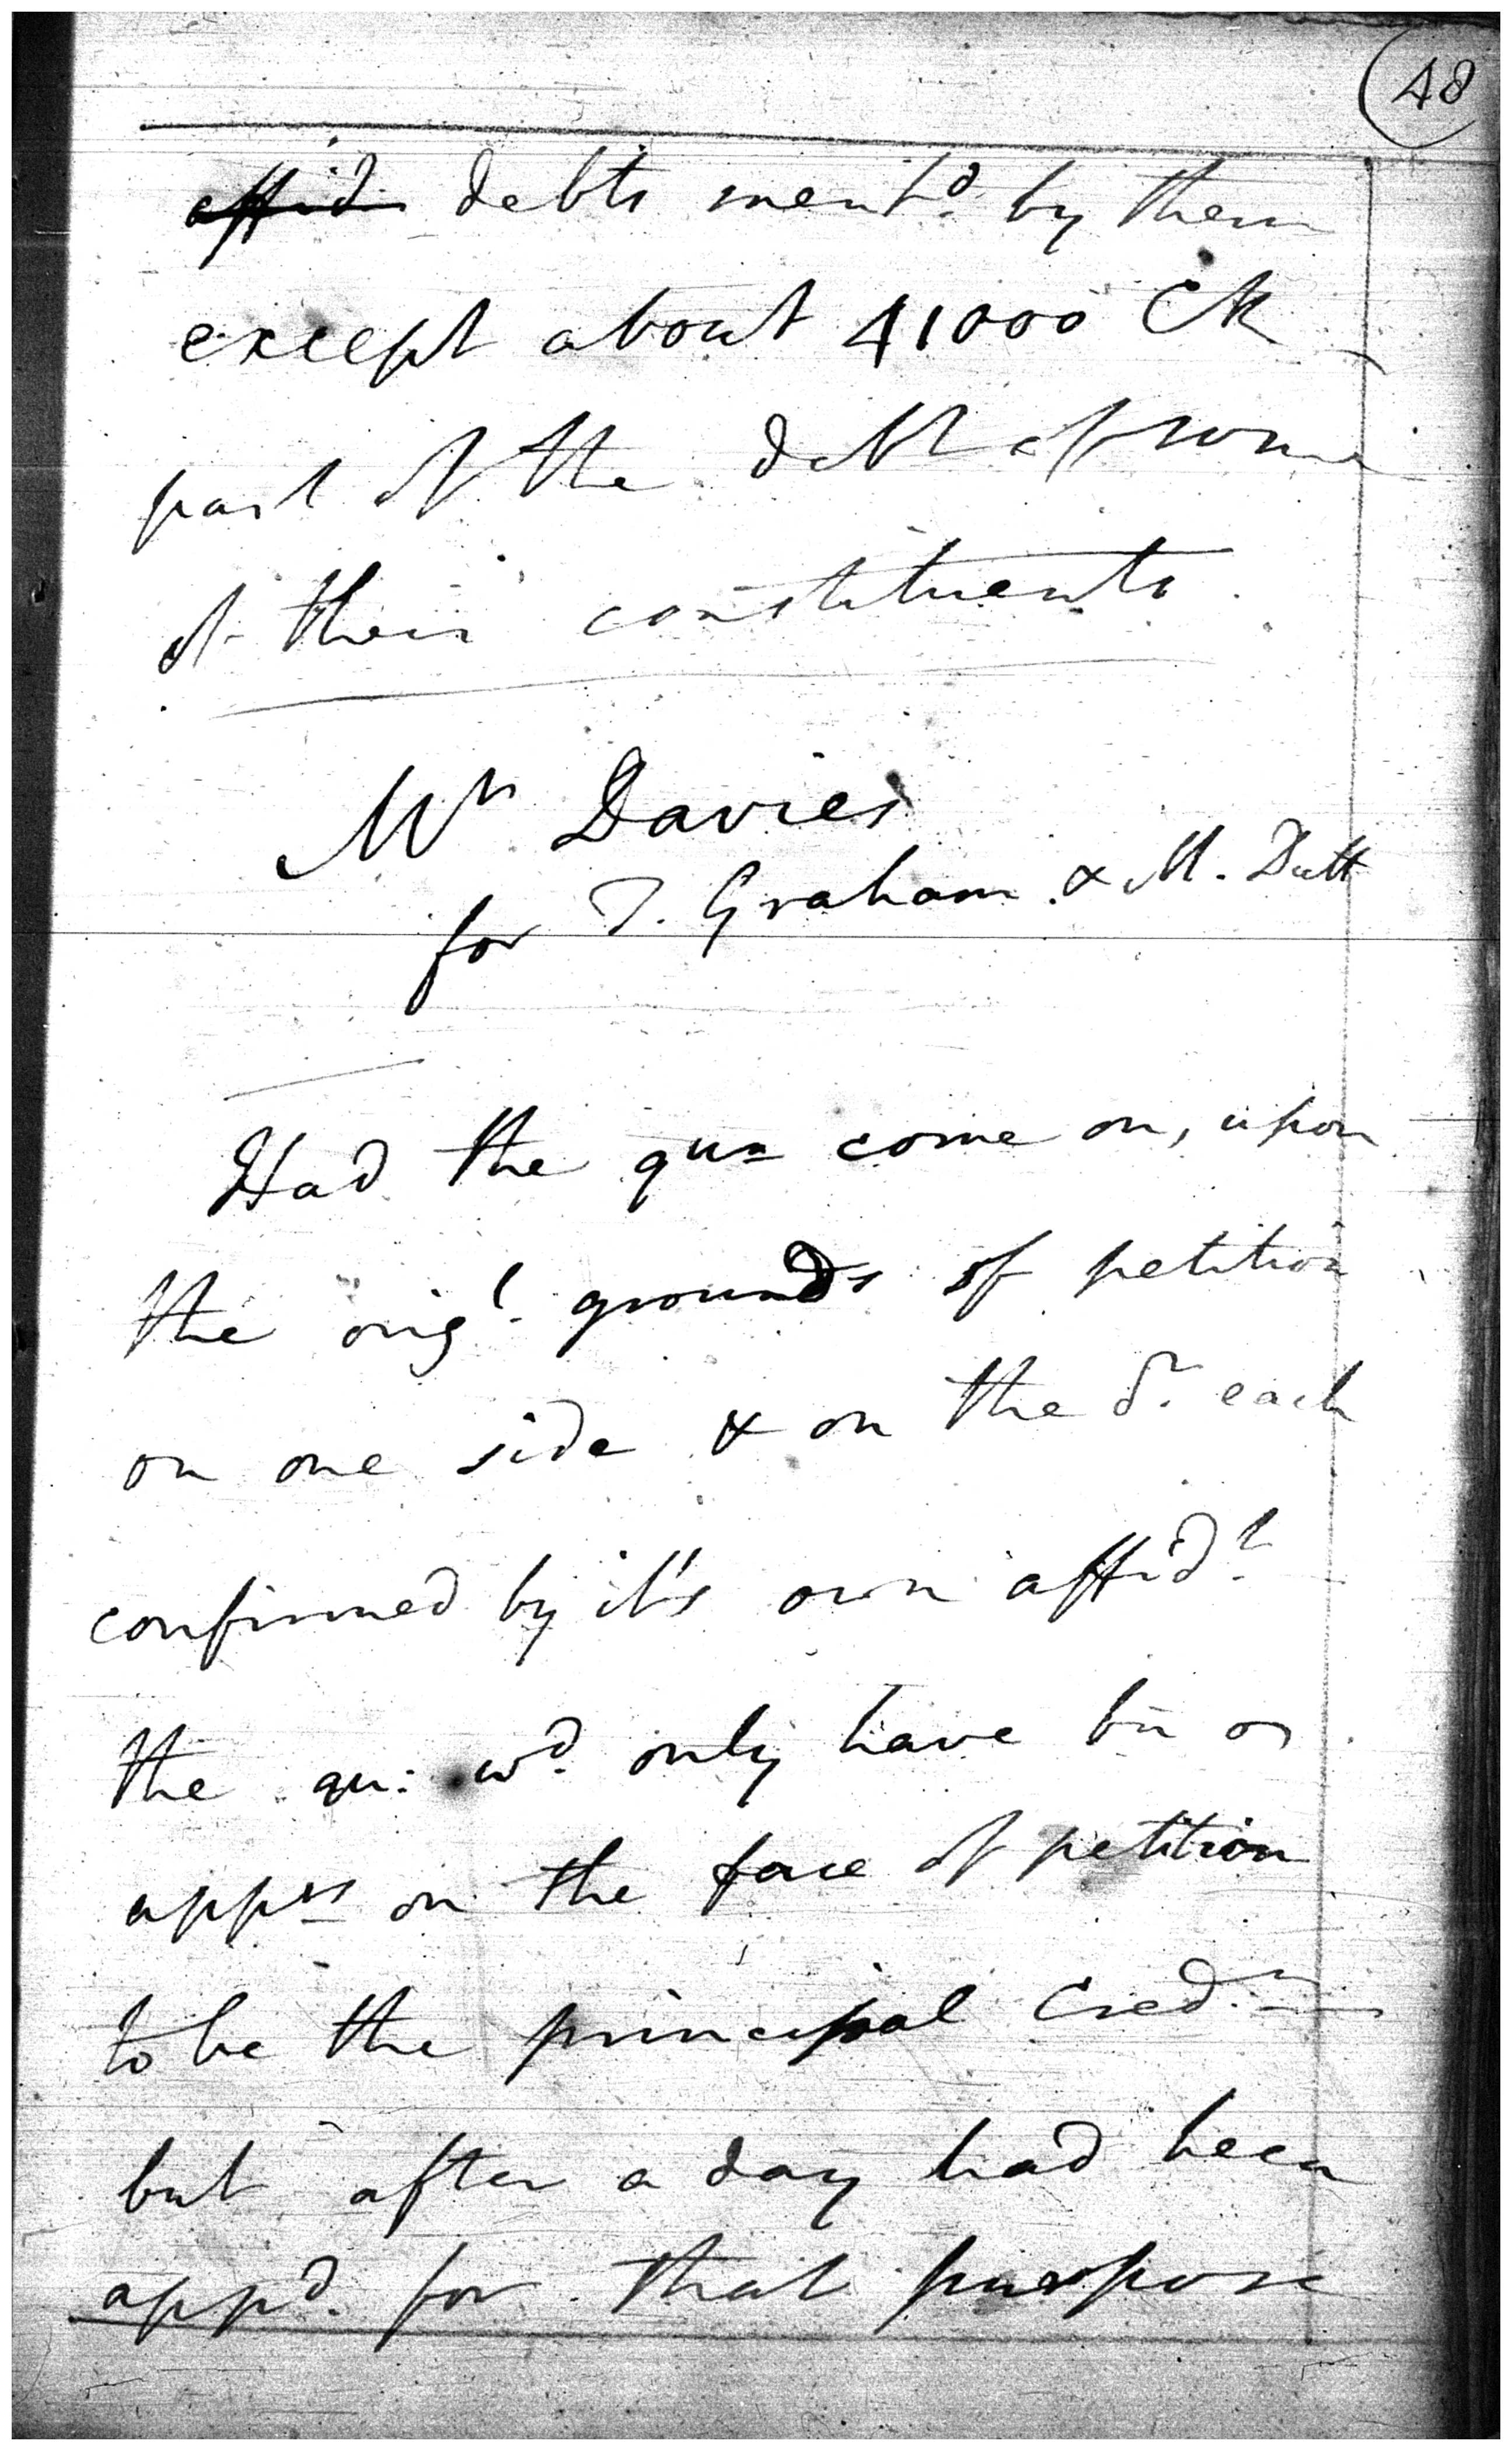 48
affid: debts ment.d by them
except about 41000 CR
part of the debt of some
of their constituents.
Mr Davies
for T. Graham & M. Dutt
Had the qun come on, upon
the orig.l grounds of petition
on one side & on the or. each
confirmed by it's own affid.t
the qu: wd. only have bn
on the face of petition
to be the principal Cred.rs
but after a day had been
app.d for that purpose